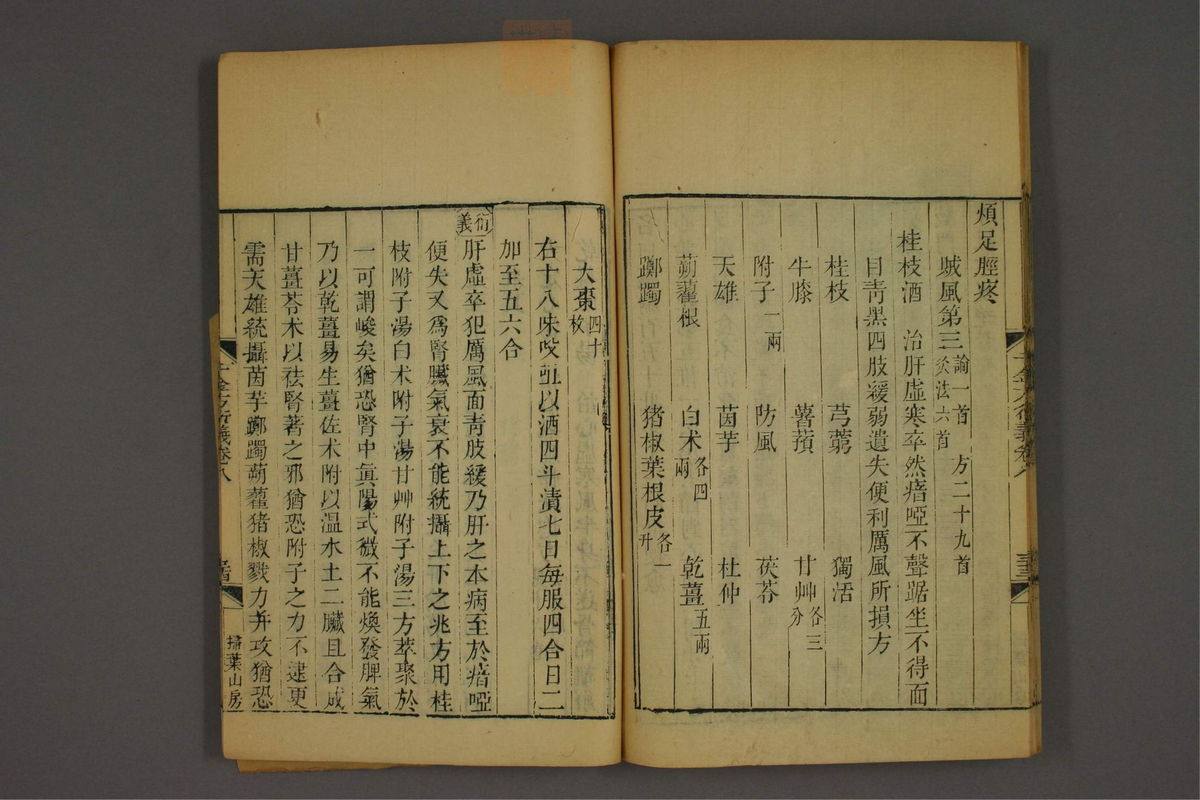 煩足脛疼
賊風第三 論一首 方二十九首 灸法六首
桂枝酒 治肝虛寒卒然瘖啞不聲踞坐不得面
目青黑四肢緩弱遺失便利厲風所損方
桂枝 芎藭 獨活
牛膝 薯蕷 甘艸各三分
附子二兩 防風 茯苓
天雄 茵芋 杜仲
蒴藋根 白术各四兩 乾薑五兩
躑躅 猪椒葉根皮各一升
大棗四十枚
右十八味㕮咀以酒四斗漬七日每服四合日二
加至五六合
衍義 肝虛卒犯厲風面青肢緩乃肝之本病至於瘖啞
便失又為腎臟氣衰不能統攝上下之兆方用桂
枝附子湯白术附子湯甘艸附子湯三方萃聚於
一可謂峻矣猶恐腎中真陽式微不能煥發脾氣
乃以乾薑易生薑佐术附以溫水土二臟且合成
甘薑苓术以祛腎著之邪猶恐附子之力不逮更
需天雄統攝茵芋躑躅蒴藋猪椒戮力并攻猶恐
千金方衍義卷八
掃葉山房